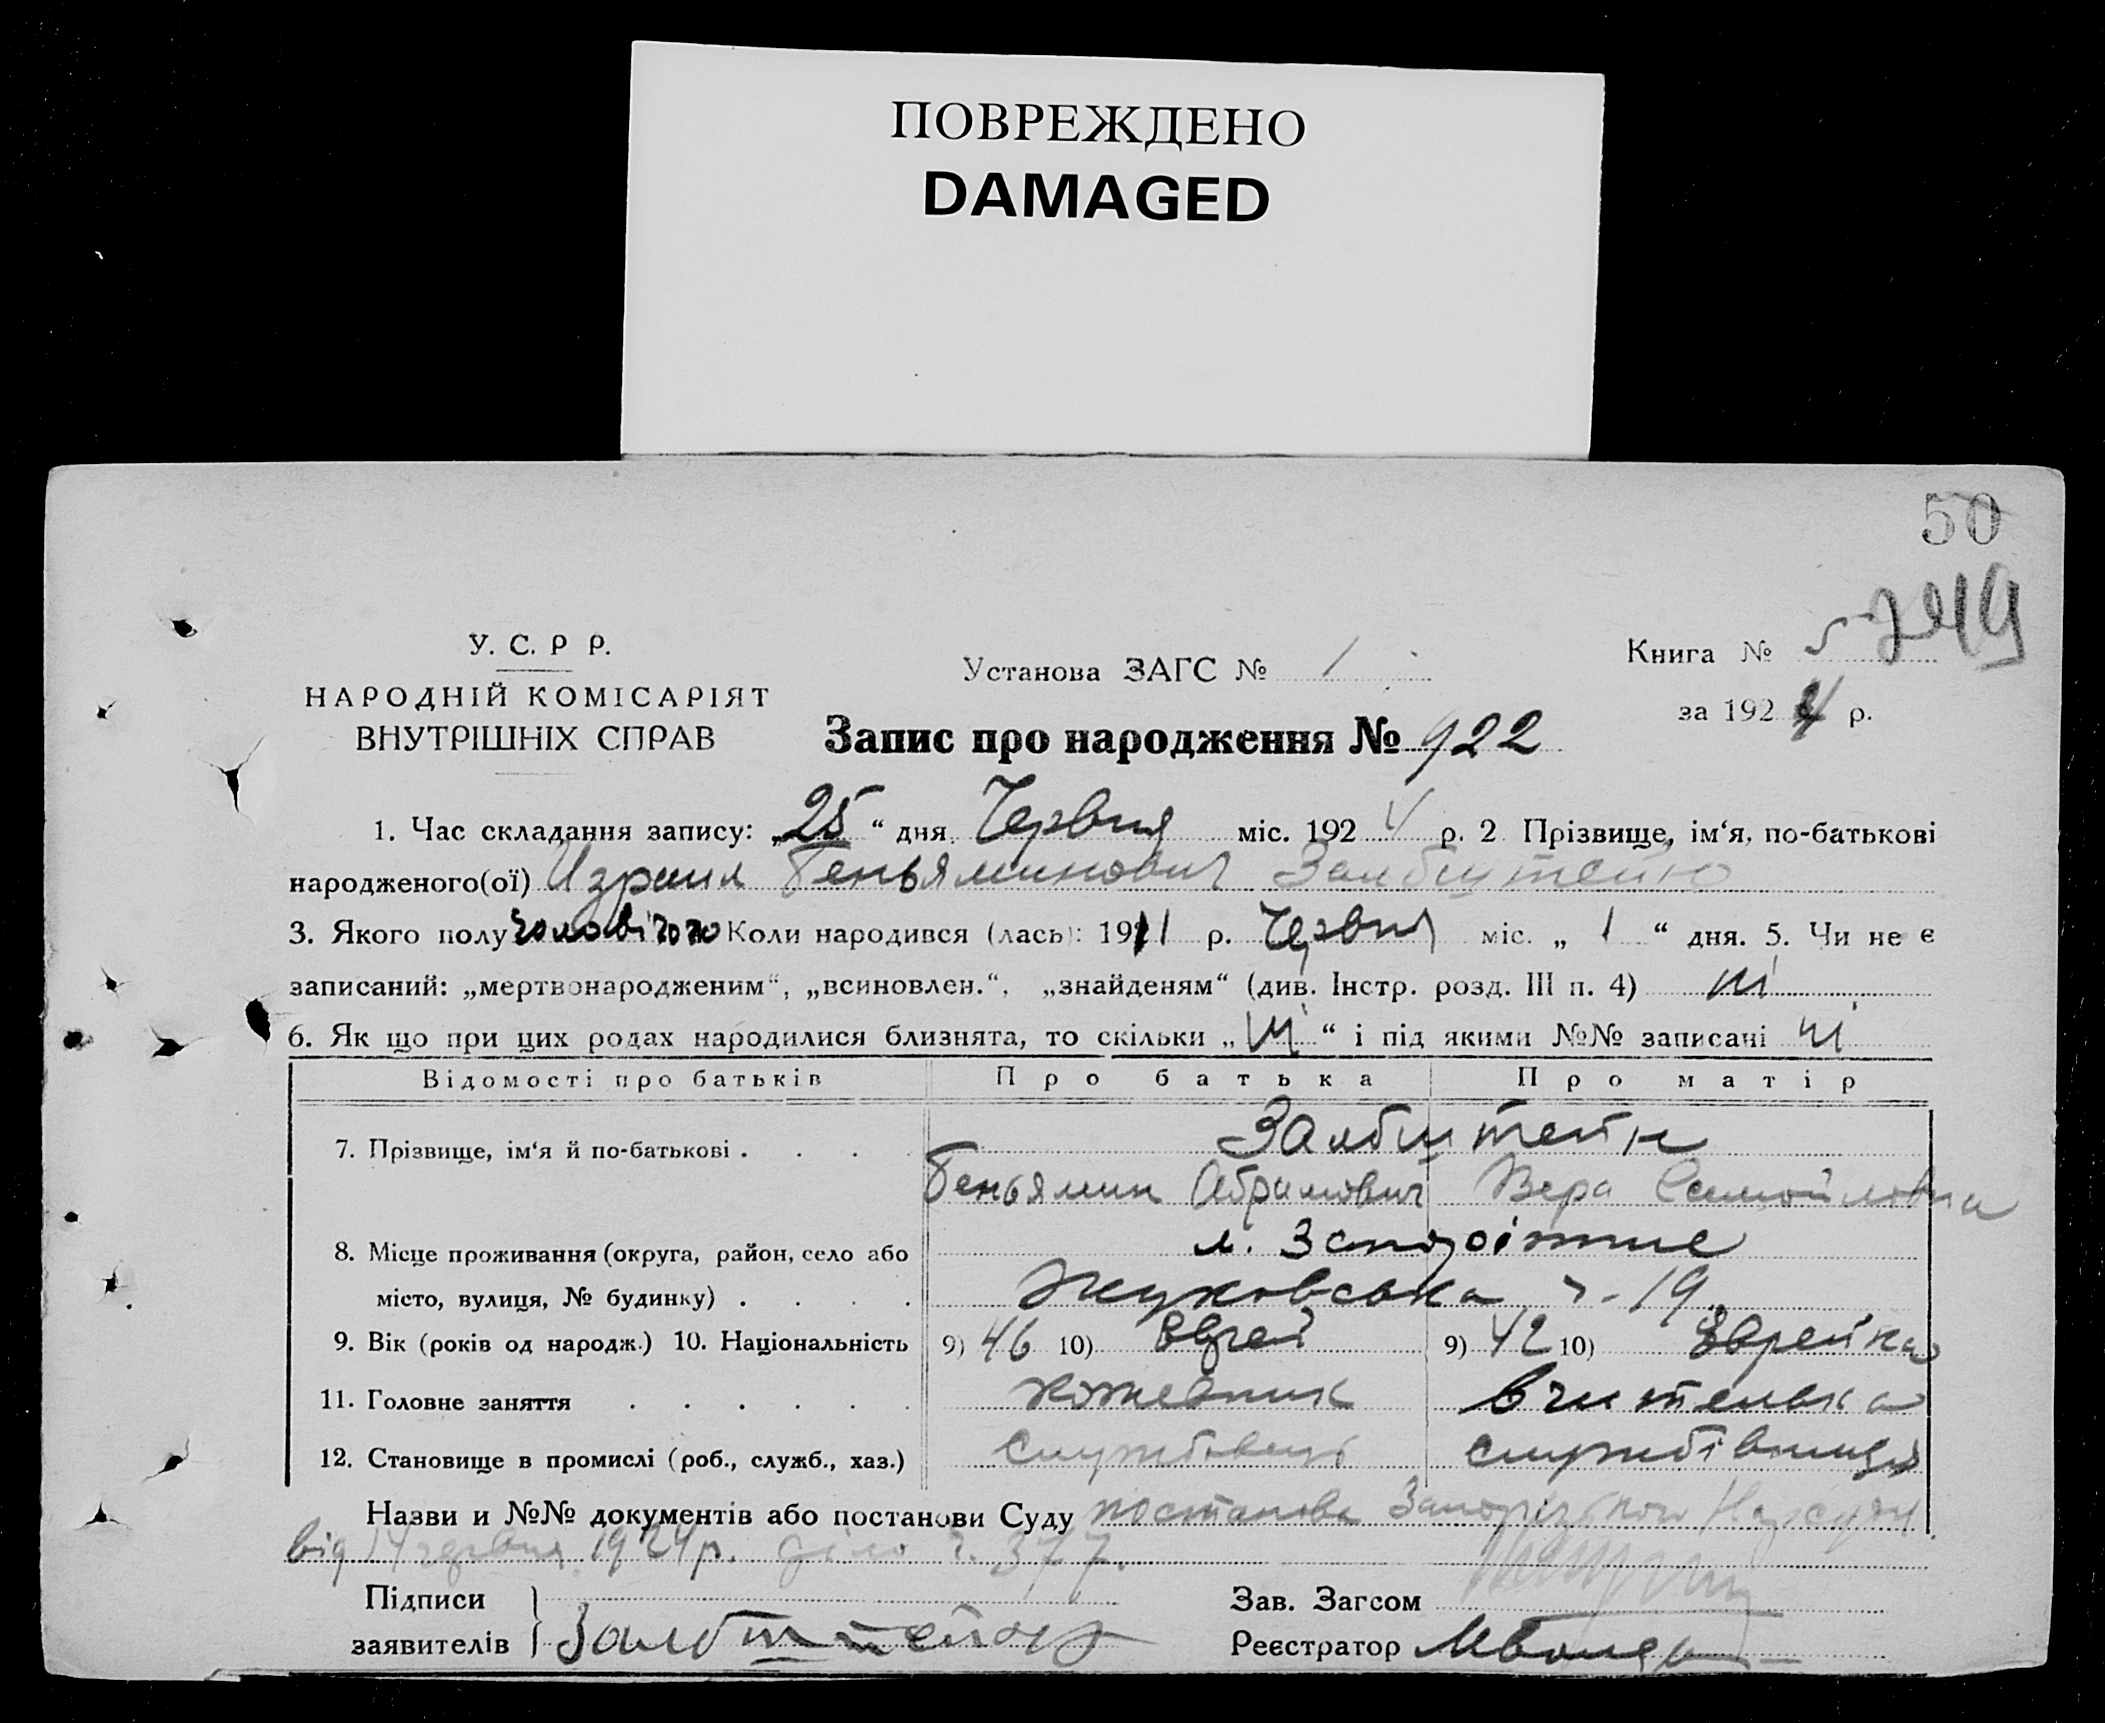 ПОВРЕЖДЕНО
DAMAGED
50
У. С. Р Р.
НАРОДНІЙ КОМІСАРІЯТ
ВНУТРІШНІХ СПРАВ
Установа ЗАГС № 1
Книга № 5
за 1924 р.
Запис про народження № 922
1. Час складання запису: „25“ дня Червня міс. 1924 р. 2 Прізвище, ім‘я, по-батькові
народженого(ої) Израил Беньяминович Залбштейн
3. Якого полу чоловічого Коли народився (лась): 1911 р. Червня міс. „1“ дня. 5. Чи не є
записаний: „мертвонародженим“, „всиновлен.“, „знайденям“ (див. Інстр. розд. III п. 4) ні
6. Як що при цих родах народилися близнята, то скільки „ні“ і під якими №№ записані ні
Відомості про батьків Про батька Про матір
7. Прізвище, ім‘я й по-батькові . . . . Залбштейн
Беньямин Абрамович Вера Самойловна
8. Місце проживання (округа, район, село або м. Запоріжже
місто, вулиця, № будинку) . . . . Жуковська ч. 19
9. Вік (років од народж.) 10. Національність 9) 46 10) Єврей 9) 42 10) Єврейка
11. Головне заняття . . . . . . кожевник вчителька
12. Становище в промислі (роб., служб., хаз.) службовець службівниця
Назви и №№ документів або постанови Суду постанова Запорізького Нарсуду
від 14 червня 1924 р. діло ч. 377.
Підписи
заявителів Залбштейн
Зав. Загсом
Реєстратор